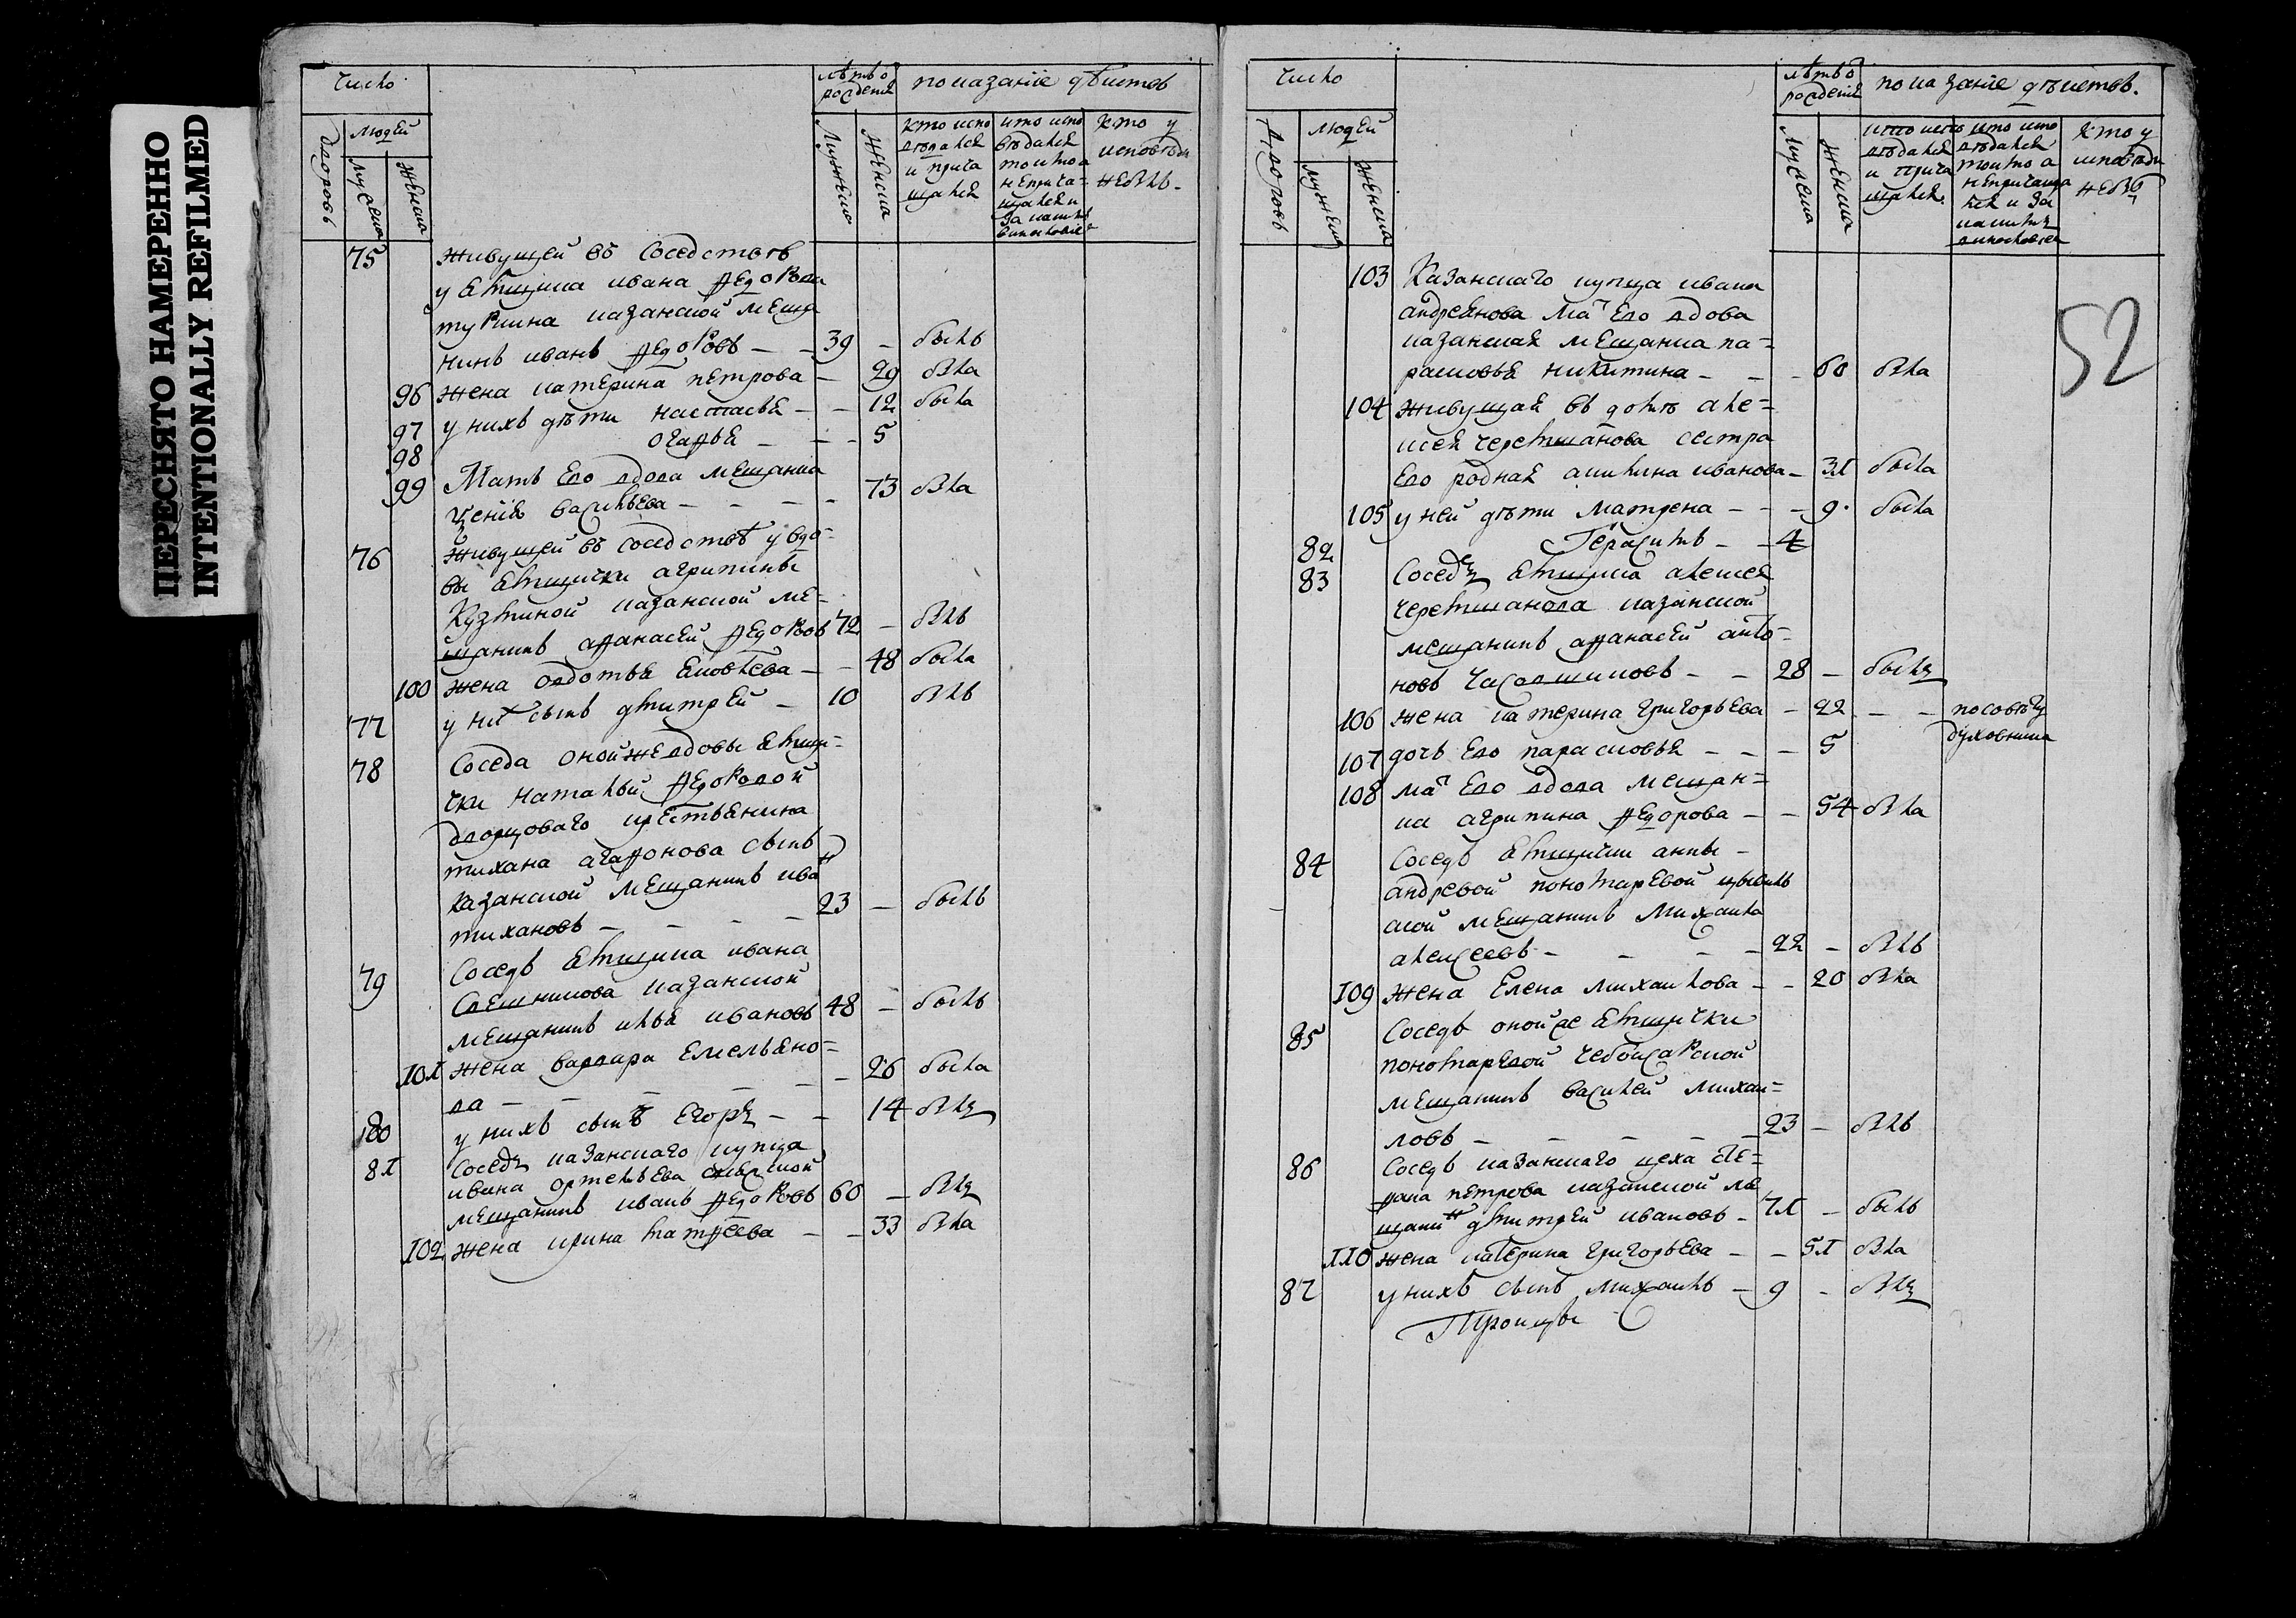 ПЕРЕСНЯТО НАМЕРЕННО
INTENTIONALLY REFILMED
число
лѣтъ ѿ рожденія
показаніе дѣистев
дворовъ
людей
мужеска
женска
мужеска
женска
кто испо
вѣдался
и прича
щался
кто испо
вѣдался
токмо а
неприча-
щался и
за каким
кто у
исповѣди
небылъ
75 живущей въ соседствѣ
у ямщика ивана федорова
казанской меща
нинъ иванъ федоровъ — 39 — былъ
96 жена катерина петрова — 29 была
97 у нихъ дѣти настасья — — 12 была
98 — — 5
99 Мать ево вдова мещанка
васильева — — — — 73 была
76 живущей въ соседствѣ у вдо-
вы ямщички агрипины
Кузминой казанской ме-
щанинъ афанасей федоровъ 72 — былъ
100 жена овдотья яковлева — — 48 была
77 у них сынъ дмитрей — 10 былъ
78 Соседа оной же вдовы ямщи-
чки натальи федоровой
дворцоваго крестьянина
тихана агафонова сынъ
казанской мещанинъ иван
тихановъ — — — — 23 — былъ
79 Соседъ ямщика ивана
казанской
мещанинъ илья ивановъ 48 — былъ
101 жена варвара емельяно-
ва — — — — — — 26 была
80 у нихъ сынъ Егоръ — — 14 былъ
81 Соседъ казанскаго купца
ивана
мещанинъ иванъ федоровъ 60 — былъ
102 жена ирина матфеева — — 33 была
число
лѣтъ ѿ рожденія
показаніе дѣистев.
дворовъ
людей
мужеска
женска
мужеска
женска
кто испо
вѣдался
и прича
щался
кто испо
вѣдался
токмо а
непричаща
лся и за
каким
кто у
исповѣди
небылъ
52
103 Казанскаго купца ивана
андреянова мат ево вдова
казанская мещанка па-
расковья никитина — — — 60 была
104 живущая въ домѣ але-
ксея черемшанова сестра
ево родная акилина иванова — 31 была
105 у ней дѣти матрена — — — 9 была
82 Герасимъ — — 4
83 Соседъ ямщика алексея
черемшанова казанской
мещанинъ афанасей анто-
новъ — — 28 — былъ
106 жена катерина григорьева — 22 — — по совѣту
духовника
107 дочь ево парасковья — — — 5
108 мат ево вдова мещан-
ка агрипина федорова — — 54 была
84 Соседъ ямщички анны
андревой пономаревой
ской мещанинъ михаила
алексеевъ — — — — 22 — былъ
109 жена Елена михаилова — — 20 была
85 Соседъ оной же ямщички
пономаревой чебоксарской
мещанинъ василей михаи-
ловъ — — — — — 23 — былъ
86 Соседъ казанскаго цеха сте-
фана петрова казанской ме
щанин дмитрей ивановъ — 71 — былъ
110 жена катерина григорьева — — 51 была
87 у нихъ сынъ михаилъ — 9 — былъ